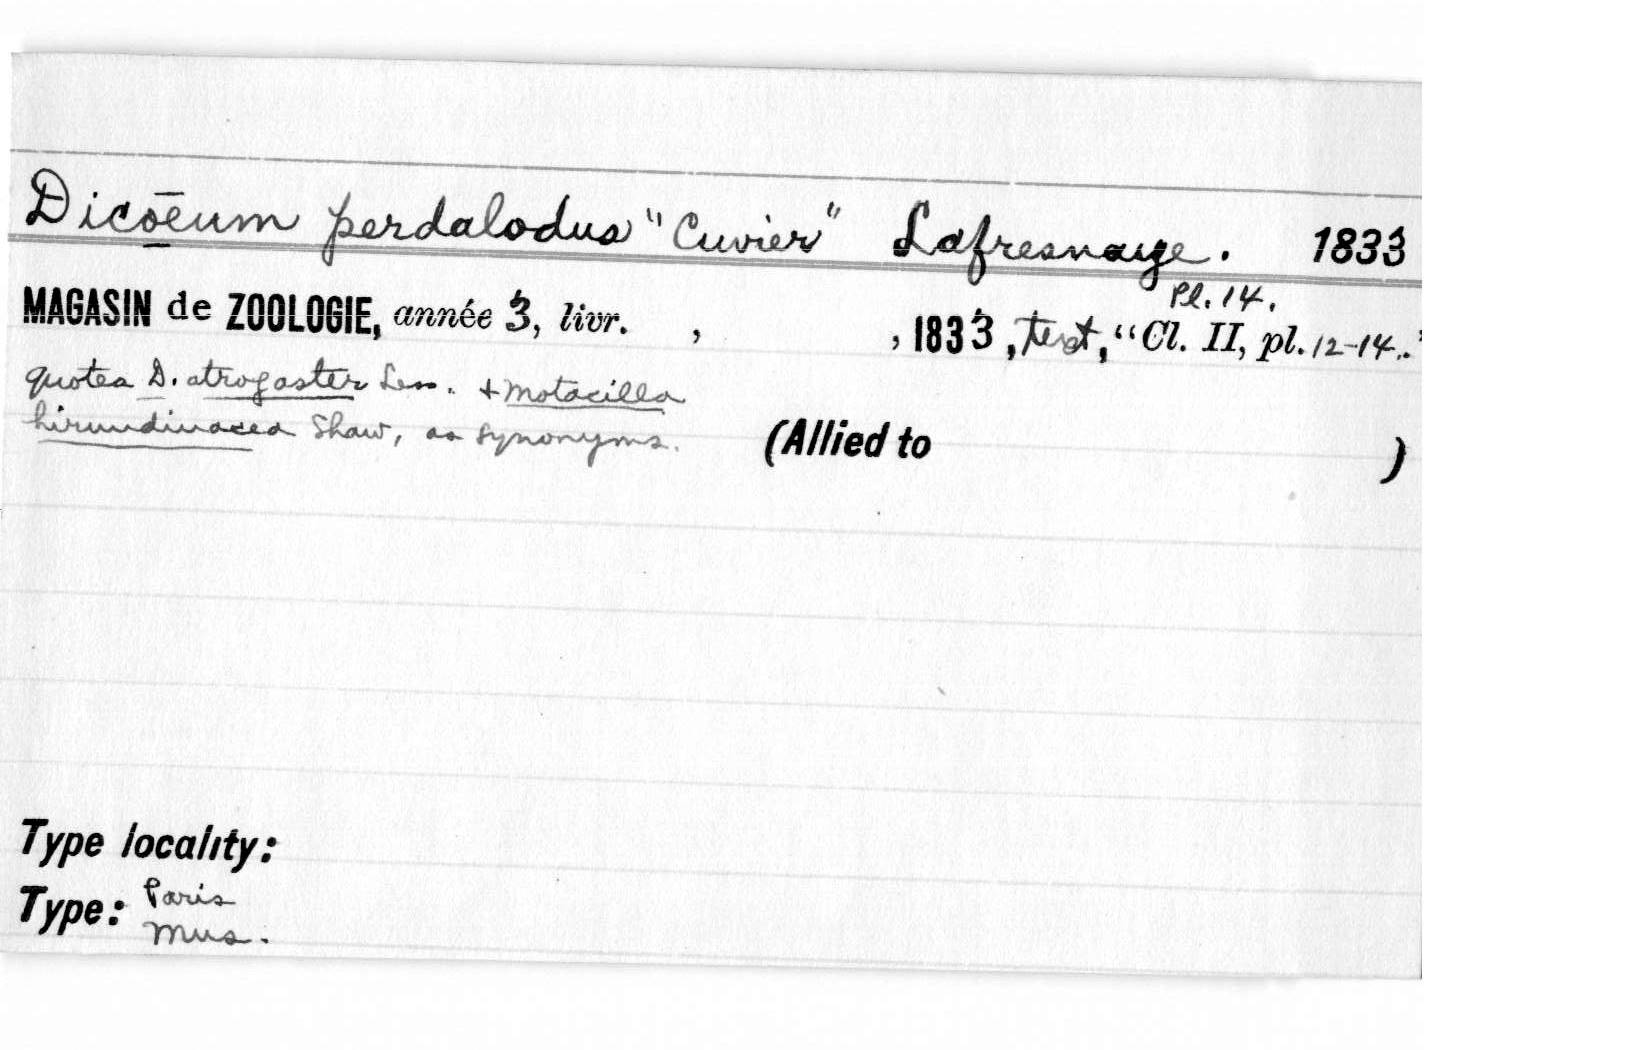 Dicoeum perdalodus "Cuvier" Lafresnaye. 1833
Pl. 14.
MAGASIN de ZOOLOGIE, année 3, livr. , , 1833, text, "Cl. II, pl. 12-14."
quotes D. atrogaster Less. + Motacilla
hirundinacea Shaw, as synonyms. (Allied to )
Type locality:
Type: Paris
Mus.